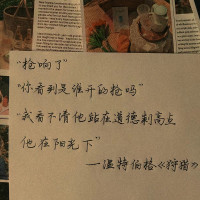 “枪响了”
“你看到是谁开的枪吗”
“我看不清他站在道德制高点
他在阳光下”
——温特伯格《狩猎》